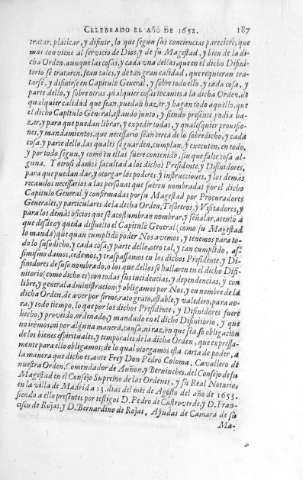 CELEBRADO EL AÑO DE 1652. 187
tratar, platicar, y difinir, lo que segun sus conciencias pareciere, que
mas conviene al servicio de Dios, y de su Magestad, y bien de la di-
cha Orden, aunque las cosas, y cada una dellas, que en el dicho Difini-
torio se trataren, sean tales, y de tan gran calidad, que requieran tra-
tarse, y difinirse en Capitulo General, y sobre todo ello, y cada cosa, y
parte dello, y sobre otras qualesquier cosas tocantes a la dicha Orden, de
qualquier calidad que sean, puedan hazer, y hagan todo aquello, que
el dicho Capitulo General, estando junto, y siendo presente podia ha-
zer, y para que puedan librar, y expedir todas, y qualesquier provisio-
nes, y mandamientos, que necessario sean cerca de lo sobredicho, y cada
cosa, y parte dello, las quales se guarden, cumplan, y executen, en todo,
y por todo segun, y como en ellas fuere contenido, sin que falte cosa al-
guna. Y ansi damos facultad a los dichos Presidente, y Difinidores,
para que puedan dar, y otorgar los poderes, y instrucciones, y los demas
recaudos necessarios a las personas que fueron nombradas por el dicho
Capitulo General, y confirmadas por su Magestad por Procuradores
Generales, y particulares de la dicha Orden, Tesoreros, y Visitadores, y
para los demas oficios que se acostumbran nombrar, y señalar, acerca
de lo susodicho, y cada cosa, y parte dello, otro tal, y tan cumplido, as-
simismo damos, cedemos, y traspassamos en los dichos Presidente, y Di-
finidores de suso nombrados, a los que dellos se hallaren en el dicho Difi-
nitorio, como dicho es, con todas sus incidencias, y dependencias, y con
libre, y general administracion: y obligamos por Nos, y en nombre de la
dicha Orden, de aver por firme, rato, grato, estable, y valedero, para ao-
ra, y en todo tiempo, lo que por los dichos Presidente, y Difinidores fuere
hecho, y proveido, ordenado, y mandado en el dicho Difinitorio, y que
no iremos, por alguna manera, causa, ni razon, que sea, so obligacion
de los bienes espirituales, y temporales de la dicha Orden, que expressa-
mente para ello obligamos; de lo qual otorgamos esta carta de poder, a
la manera que dicho es, ante Frey Don Pedro Coloma, Cavallero de
nuestra Orden, Comendador de Auñon, y Berninches, del Consejo de su
Magestad en el Consejo Supremo de las Ordenes, y su Real Notario,
en la villa de Madrid a 13. dias del mes de Agosto del año de 1653.
siendo a ello presentes por testigos D. Pedro de Castroverde, y D. Fran-
cisco de Rojas, y D. Bernardino de Rojas, Ajudas de Camara de su
Ma-